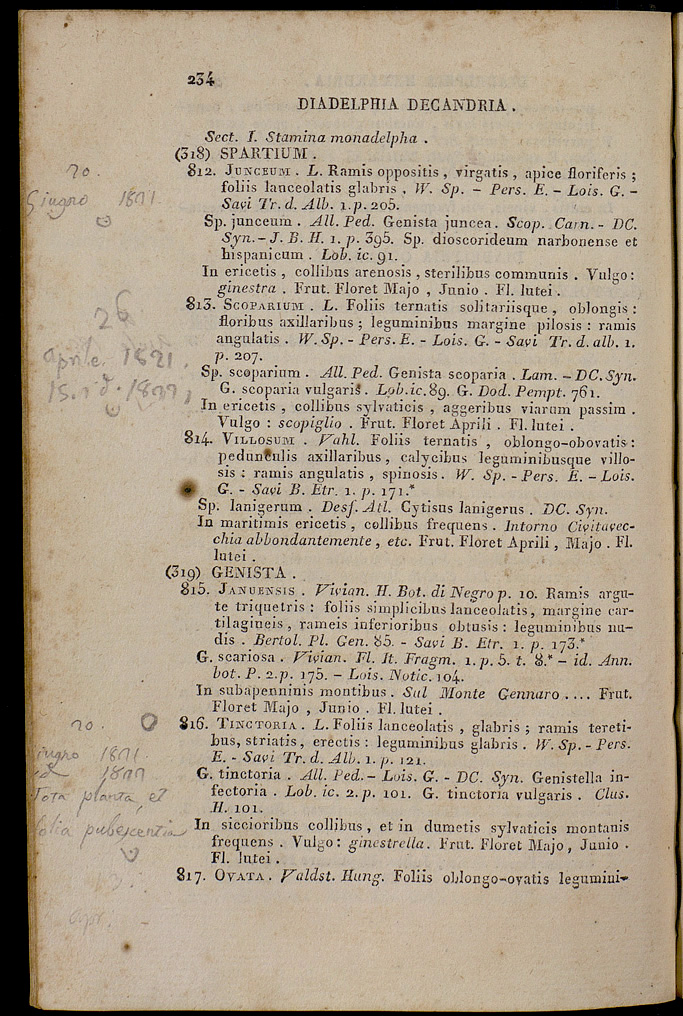 234
DIADELPHIA DECANDRIA .
Sect. I. Stamina monadelpha .
(318) SPARTIUM .
812. JUNCEUM . L. Ramis oppositis , virgatis , apice floriferis ;
foliis lanceolatis glabris . W. Sp. – Pers. E. – Lois. G. –
Savi Tr. d. Alb. 1. p. 205.
Sp. junceum . All. Ped. Genista juncea . Scop. Carn. – DC.
Syn. – J. B. H. 1. p. 395. Sp. dioscorideum narbonense et
hispanicum . Lob. ic. 91.
In ericetis , collibus arenosis , sterilibus communis . Vulgo :
ginestra . Frut. Floret Majo , Junio . Fl. lutei .
813. SCOPARIUM . L. Foliis ternatis solitariisque , oblongis :
floribus axillaribus ; leguminibus margine pilosis : ramis
angulatis . W. Sp. - Pers. E. - Lois. G. - Savi Tr. d. alb. 1.
p. 207.
Sp. scoparium . All. Ped. Genista scoparia . Lam. – DC. Syn.
G. scoparia vulgaris. Lob. ic. 89. G. Dod. Pempt. 761.
In ericetis , collibus sylvaticis , aggeribus viarum passim .
Vulgo : scopiglio . Frut. Floret Aprili . Fl. lutei .
814. VILLOSUM . Vahl. Foliis ternatis , oblongo-obovatis :
pedunculis axillaribus , calycibus leguminibusque villo-
sis : ramis angulatis , spinosis . W. Sp. - Pers. E. – Lois.
G. - Savi B. Etr. 1. p. 171.*
Sp. lanigerum . Desf. Atl. Cytisus lanigerus . DC. Syn.
In maritimis ericetis , collibus frequens . Intorno Civitavec-
chia abbondantemente , etc. Frut. Floret Aprili , Majo . Fl.
lutei .
(319) GENISTA .
815. JANUENSIS . Vivian. H. Bot. di Negro p. 10. Ramis argu-
te triquetris : foliis simplicibus lanceolatis , margine car-
tilagineis , rameis inferioribus obtusis : leguminibus nu-
dis . Bertol. Pl. Gen. 85. - Savi B. Etr. 1. p. 173.*
G. scariosa . Vivian. Fl. It. Fragm. 1. p. 5. t. 8.* – id. Ann.
bot. P. 2. p. 175. – Lois. Notic. 104.
In subapenninis montibus . Sul Monte Gennaro .... Frut.
Floret Majo , Junio . Fl. lutei .
816. TINCTORIA . L. Foliis lanceolatis , glabris ; ramis tereti-
bus, striatis , erectis : leguminibus glabris . W. Sp. - Pers.
E. - Savi Tr. d. Alb. 1. p. 121.
G. tinctoria . All. Ped. – Lois. G. - DC. Syn. Genistella in-
fectoria . Lob. ic. 2. p. 101. G. tinctoria vulgaris . Clus.
H. 101.
In siccioribus collibus , et in dumetis sylvaticis montanis
frequens . Vulgo : ginestrella. Frut. Floret Majo , Junio .
Fl. lutei .
817. OVATA . Valdst. Hung. Foliis oblongo-ovatis legumini-
20.
Giugno
26
aprile
20.
Tota planta, et
folia pubescentia
apr.